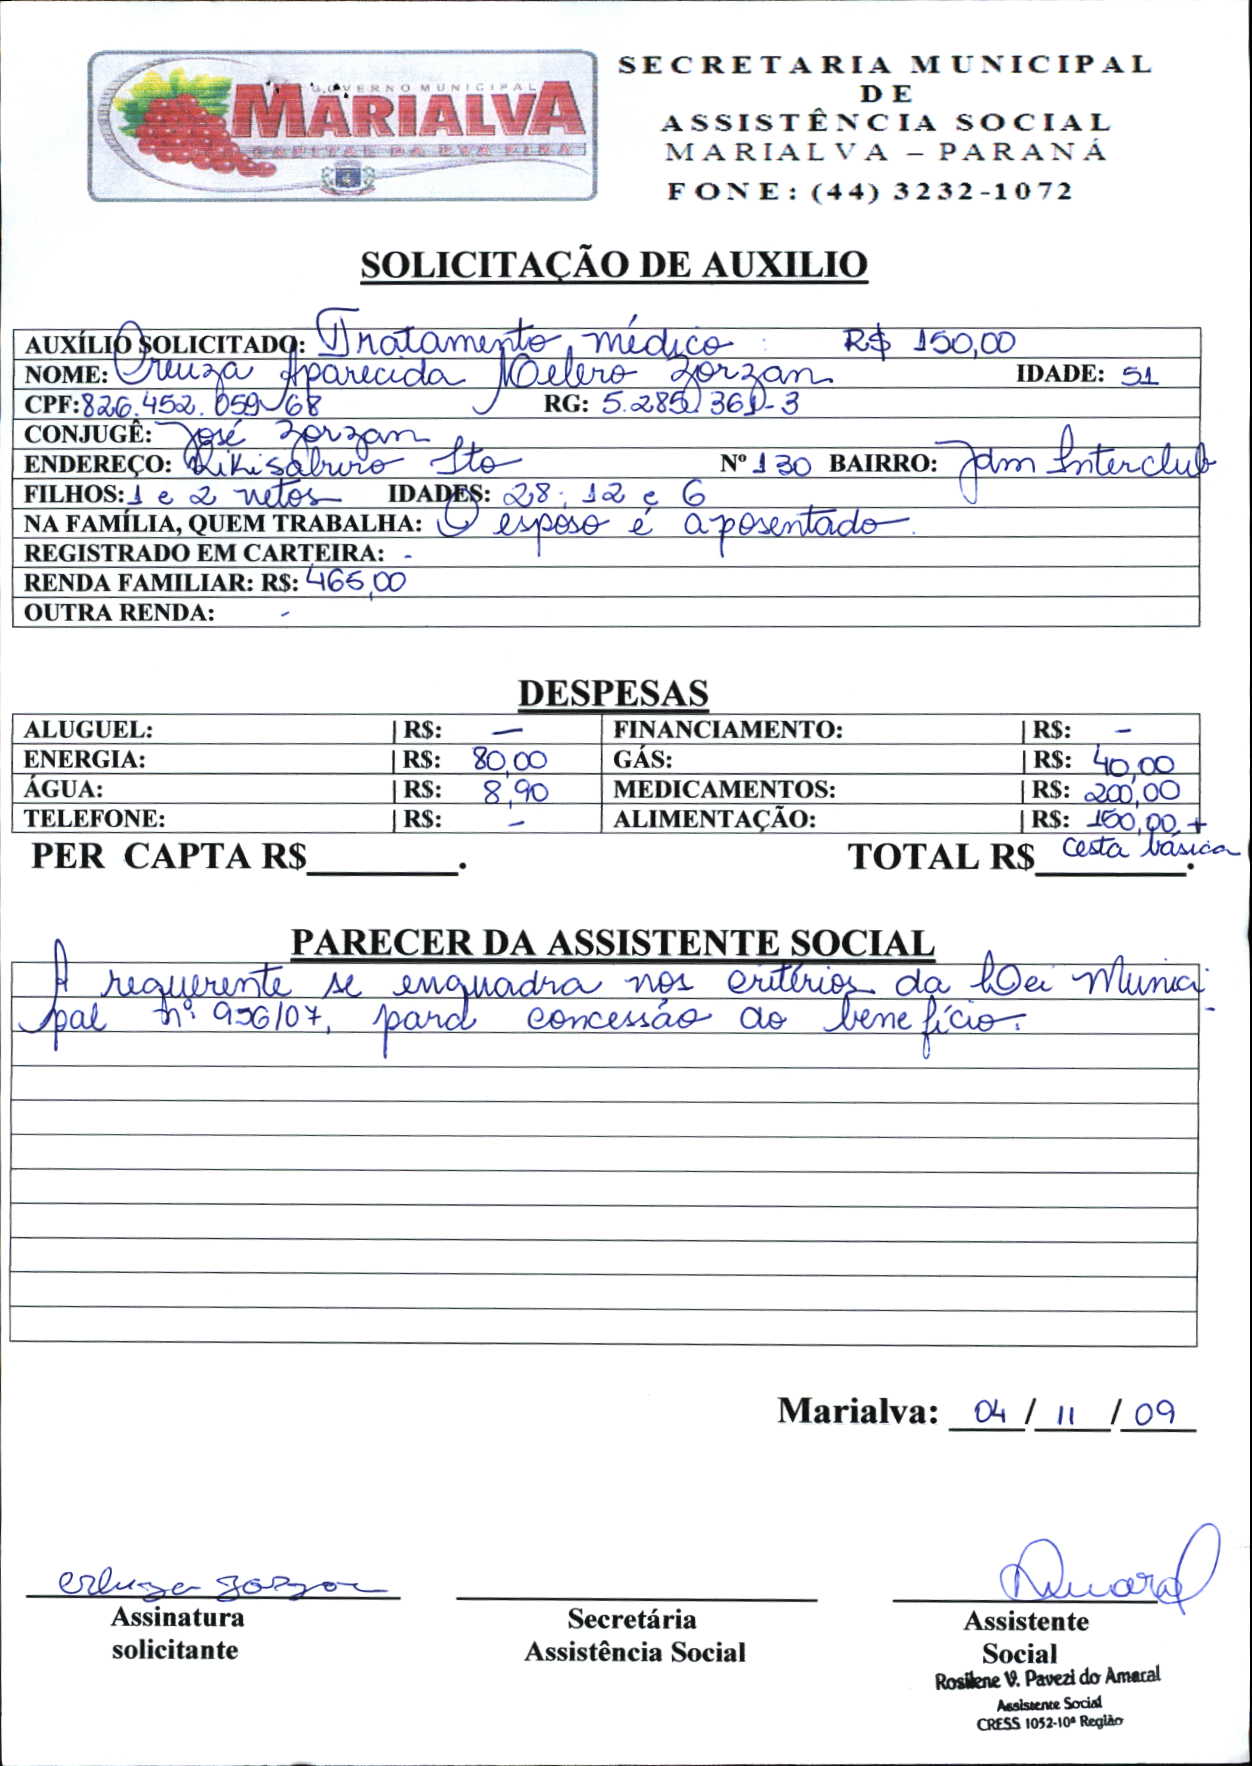 GOVERNO MUNICIPAL
MARIALVA
CAPITAL DA UVA FINA
SECRETARIA MUNICIPAL
DE
ASSISTÊNCIA SOCIAL
MARIALVA – PARANÁ
FONE: (44) 3232-1072
SOLICITAÇÃO DE AUXILIO
AUXÍLIO SOLICITADO: Tratamento médico R$ 150,00
NOME: Creuza Aparecida Melero Zorzan IDADE: 51
CPF: 826.452.059-68 RG: 5.285.361-3
CONJUGÊ: José Zorzan
ENDEREÇO: Rikisaburo Ito Nº 130 BAIRRO: Jdm Interclub
FILHOS: 1 e 2 netos IDADES: 28, 12 e 6
NA FAMÍLIA, QUEM TRABALHA: O esposo é aposentado.
REGISTRADO EM CARTEIRA: -
RENDA FAMILIAR: R$: 465,00
OUTRA RENDA: -
DESPESAS
ALUGUEL: | R$: — FINANCIAMENTO: | R$: -
ENERGIA: | R$: 80,00 GÁS: | R$: 40,00
ÁGUA: | R$: 8,90 MEDICAMENTOS: | R$: 200,00
TELEFONE: | R$: - ALIMENTAÇÃO: | R$: 150,00 +
cesta básica
PER CAPTA R$________. TOTAL R$________.
PARECER DA ASSISTENTE SOCIAL
A requerente se enquadra nos critérios da Lei Munici-
pal nº 956/07, para concessão do benefício.
Marialva: 04 / 11 / 09
Assinatura solicitante
Secretária Assistência Social
Assistente Social
Rosilene V. Pavezi do Amaral
Assistente Social
CRESS 1052-10ª Região